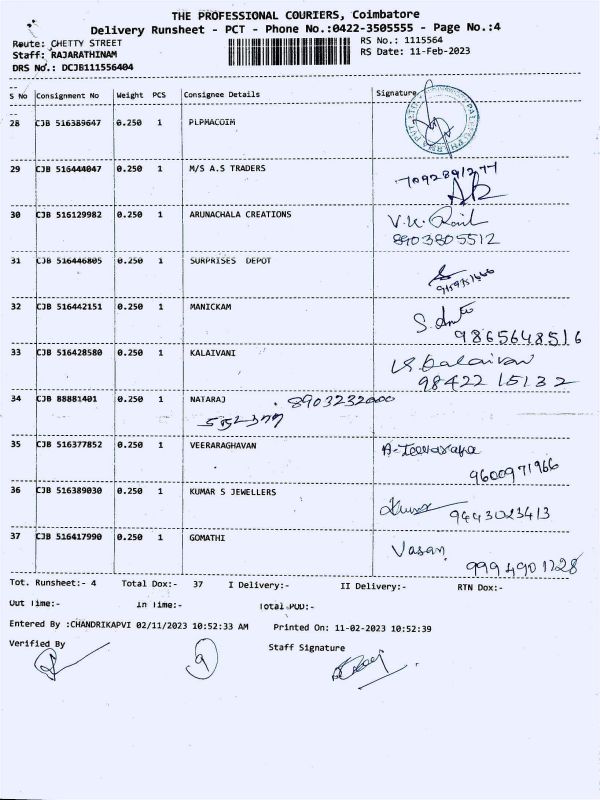 THE PROFESSIONAL COURIERS, Coimbatore
Delivery Runsheet - PCT - Phone No.:0422-3505555 - Page No.:4
Route: CHETTY STREET
RS No.: 1115564
Staff: RAJARATHINAM
RS Date: 11-Feb-2023
DRS No.: DCJB111556404
S No Consignment No Weight PCS Consignee Details Signature
28 CJB 516389647 0.250 1 PLPMACOIM
29 CJB 516444047 0.250 1 M/S A.S TRADERS
30 CJB 516129982 0.250 1 ARUNACHALA CREATIONS V.K.
8903805512
31 CJB 516446805 0.250 1 SURPRISES DEPOT
32 CJB 516442151 0.250 1 MANICKAM S.
9865648516
33 CJB 516428580 0.250 1 KALAIVANI
98422 15132
34 CJB 88881401 0.250 1 NATARAJ 8903232000
35 CJB 516377852 0.250 1 VEERARAGHAVAN
9600971966
36 CJB 516389030 0.250 1 KUMAR S JEWELLERS
9443023413
37 CJB 516417990 0.250 1 GOMATHI Vasan
9994901128
Tot. Runsheet:- 4 Total Dox:- 37 I Delivery:- II Delivery:- RTN Dox:-
Out Time:- In Time:- Total POD:-
Entered By :CHANDRIKAPVI 02/11/2023 10:52:33 AM Printed On: 11-02-2023 10:52:39
Verified By Staff Signature